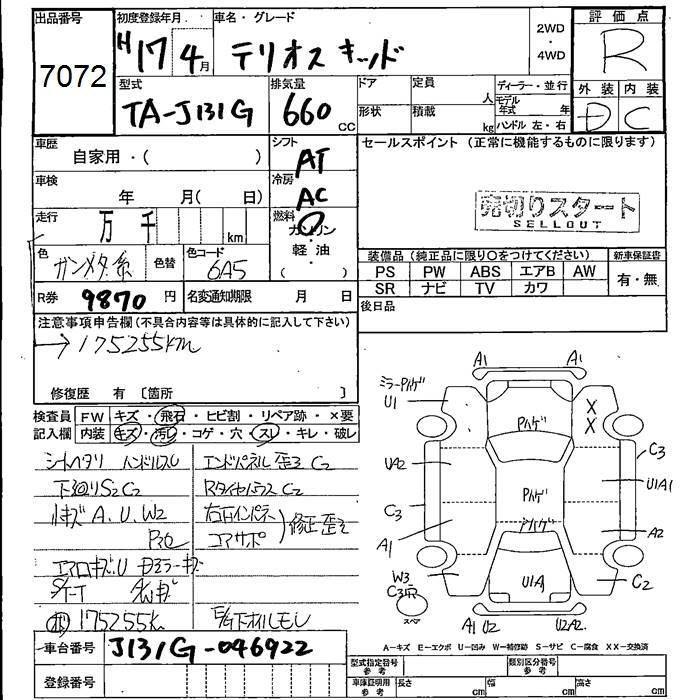 出品番号
7072
初度登録年月
H17 4月
車名・グレード
テリオスキッド
2WD
・
4WD
評価点
R
型式
TA-J131G
排気量
660 CC
ドア
形状
定員 人
積載 kg
ディーラー・並行
モデル年式 年
ハンドル 左・右
外装 内装
D C
車歴
自家用・( )
車検
年 月( 日)
走行
万 千 km
シフト
AT
冷房
AC
燃料
ガソリン
・
軽油
・
( )
セールスポイント (正常に機能するものに限ります)
売切りスタート
SELLOUT
色
ガンメタ系
色替
色コード
6A5
装備品 (純正品に限り○をつけてください)
PS PW ABS エアB AW
SR ナビ TV カワ
新車保証書
有・無
R券 9870 円
名変通知期限 月 日
後日品
注意事項申告欄(不具合内容等は具体的に記入して下さい)
→175255km
修復歴 有 〔箇所 〕
検査員記入欄
FW キズ・飛石・ヒビ割・リペア跡・×要
内装 キズ・汚レ・コゲ・穴・スレ・キレ・破レ
シートヘタリ ハンドルスレ
下廻りS2C2
リキズ A.U.W2
エアロキズ.U
175255k
エンドパネル歪ミC2
RタイヤハウスC2
右左インパネ
コアサポ
修正・歪ミ
E/G下オイルモレ
車台番号 J131G-046922
登録番号
A1
A1
ミラーハゲ
U1
Pハゲ
X
X
C3
UA2
Pハゲ
U1A1
C3
A1
A2
W3
C3
U1A
C2
スペア
A1 U2
U2A2
A-キズ E-エクボ U-凹み W-補修跡 S-サビ C-腐食 XX-交換済
型式指定番号
参考
類別区分番号
参考
車庫証明用
参考
長さ cm
幅 cm
高さ cm